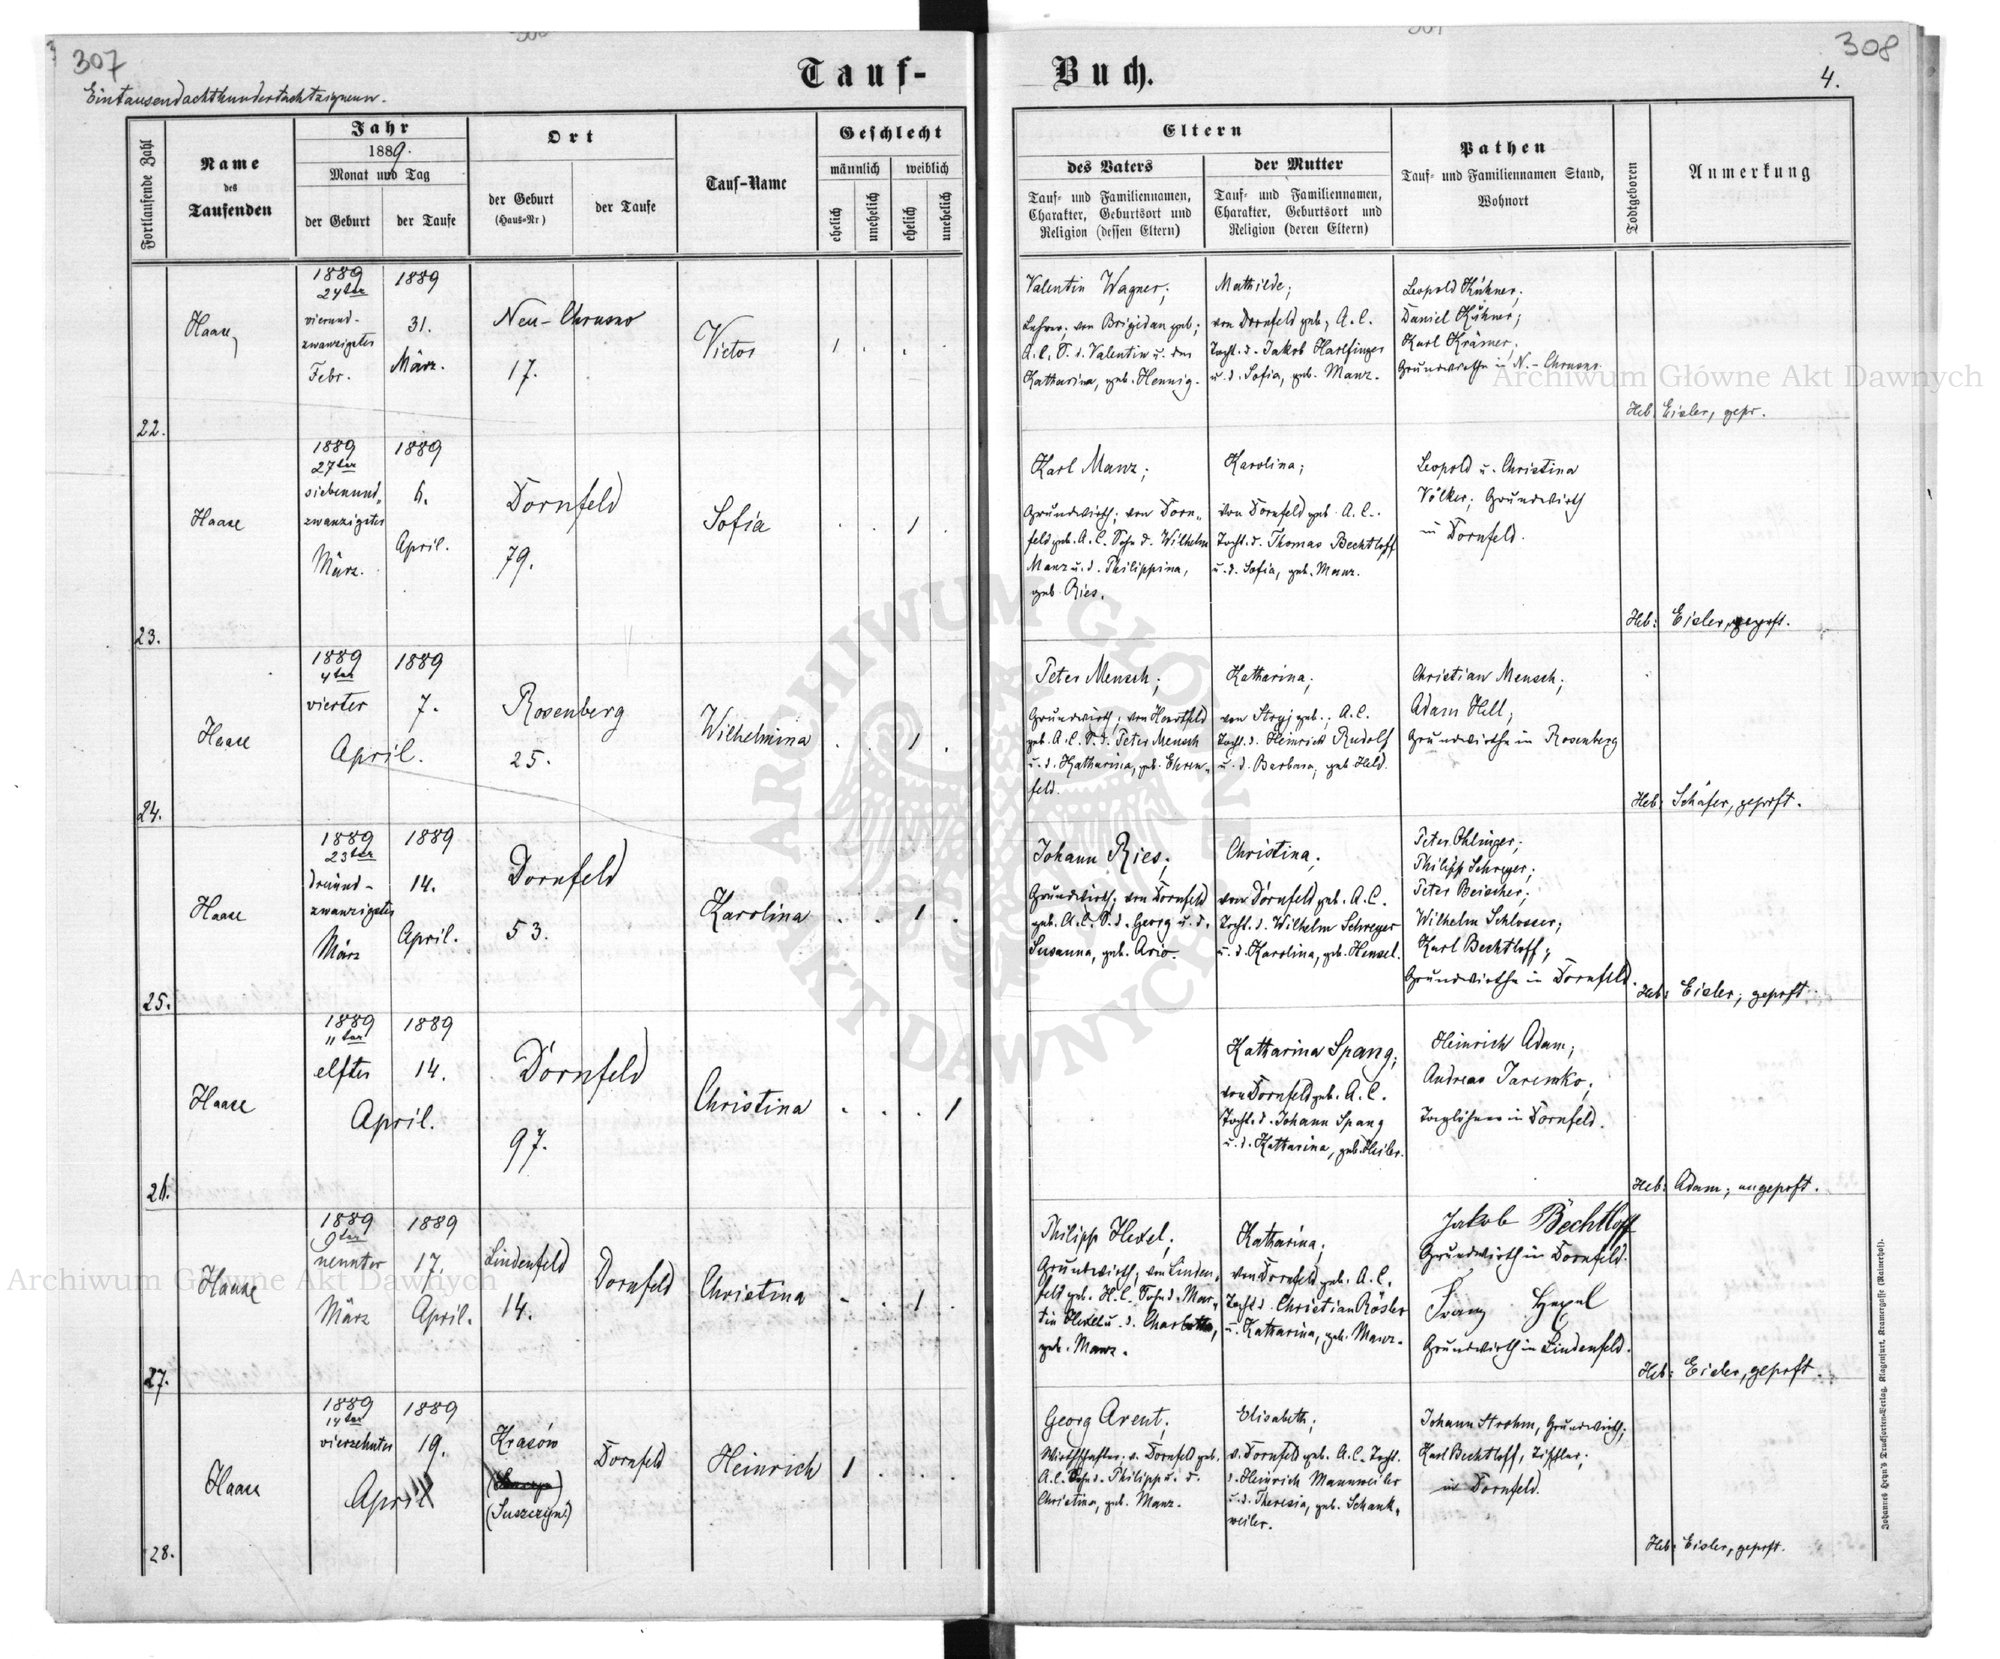 307
308
4.
Tauf-
Buch.
Eintausendachthundertachtzigneun.
Fortlaufende Zahl
Name
des
Taufenden
Jahr
1889.
Monat und Tag
der Geburt
der Taufe
Ort
der Geburt
(Haus-Nr)
der Taufe
Tauf-Name
Geschlecht
männlich
weiblich
ehelich
unehelich
ehelich
unehelich
Eltern
des Vaters
Tauf- und Familiennamen,
Charakter, Geburtsort und
Religion (dessen Eltern)
der Mutter
Tauf- und Familiennamen,
Charakter, Geburtsort und
Religion (deren Eltern)
Pathen
Tauf- und Familiennamen Stand,
Wohnort
Todtgeboren
Anmerkung
22.
Haase
1889
24ter
vierund-
zwanzigster
Febr.
1889
31.
März.
Neu-Chrusno
17.
Victor
1
Valentin Wagner;
Lehrer; von Brigidau geb;
A.C. S. d. Valentin u. der
Katharina, geb. Hennig.
Mathilde;
von Dornfeld geb, A.C.
Tocht. d. Jakob Harlfinger
u. d. Sofia, geb. Manz.
Leopold Kühner;
Daniel Kühner;
Karl Krämer;
Grundwirthe in N.-Chrusno.
Heb: Eisler, gepr.
23.
Haase
1889
27ter
siebenund-
zwanzigster
März.
1889
6.
April.
Dornfeld
79.
Sofia
1
Karl Manz;
Grundwirth; von Dorn-
feld geb. A.C. Sohn d. Wilhelm
Manz u. d. Philippina,
geb. Ries.
Karolina;
von Dornfeld geb. A.C..
Tocht. d. Thomas Bechtloff
u. d. Sofia, geb. Manz.
Leopold u. Christina
Völker; Grundwirth
in Dornfeld.
Heb: Eisler, geprft.
24.
Haase
1889
4ter
vierter
April.
1889
7.
Rosenberg
25.
Wilhelmina
1
Peter Mensch;
Grundwirth; von Hartfeld
geb. A.C. S. d. Peter Mensch
u. d. Katharina, geb. Ehren-
feld.
Katharina;
von Stryj geb.; A.C.
Tocht. d. Heinrich Rudolf
u. d. Barbara, geb. Held.
Christian Mensch;
Adam Hell;
Grundwirthe in Rosenberg
Heb: Schäfer, geprft.
25.
Haase
1889
23ter
dreiund-
zwanzigster
März
1889
14.
April.
Dornfeld
53.
Karolina
1
Johann Ries;
Grundwirth; von Dornfeld
geb. A.C. S. d. Georg u. d.
Susanna, geb. Ario.
Christina;
von Dornfeld geb. A.C.
Tocht. d. Wilhelm Schreyer
u. d. Karolina, geb. Hensel.
Peter Ohlinger;
Philipp Schreyer;
Peter Beischer;
Wilhelm Schlosser;
Karl Bechtloff;
Grundwirthe in Dornfeld.
Heb: Eisler; geprft.
26.
Haase
1889
11ter
elfter
April.
1889
14.
Dornfeld
97.
Christina
1
Katharina Spang;
von Dornfeld geb. A.C.
Tocht. d. Johann Spang
u. d. Katharina, geb. Heiler.
Heinrich Adam;
Andreas Jaremko;
Taglöhner in Dornfeld.
Heb: Adam; ungeprft.
27.
Haase
1889
9ter
neunter
März
1889
17.
April.
Lindenfeld
14.
Dornfeld
Christina
1
Philipp Hexel;
Grundwirth; von Linden-
feld geb. H.C. Sohn d. Mar-
tin Hexel u. d. Charlotte,
geb. Manz.
Katharina;
von Dornfeld geb. A.C.
Tocht. d. Christian Rösler
u. Katharina, geb. Manz.
Jakob Bechtloff
Grundwirth in Dornfeld.
Franz Hexel
Grundwirth in Lindenfeld.
Heb: Eisler, geprft.
28.
Haase
1889
14ter
vierzehnter
April
1889
19.
Krasów
(Suszczyn?)
Dornfeld
Heinrich
1
Georg Arent;
Wirthschafter; v. Dornfeld geb.
A.C. Sohn d. Philipp u. d.
Christina, geb. Manz.
Elisabeth;
v. Dornfeld geb. A.C. Tocht.
d. Heinrich Mannweiler
u. d. Theresia, geb. Schank-
weiler.
Johann Strohm, Grundwirth;
Karl Bechtloff, Tischler;
in Dornfeld.
Heb: Eisler, geprft.
Johannes Heyn's Drucksorten-Verlag, Klagenfurt, Kramergasse (Rainerhof).
Archiwum Główne Akt Dawnych
Archiwum Główne Akt Dawnych
ARCHIWUM GŁÓWNE AKT DAWNYCH